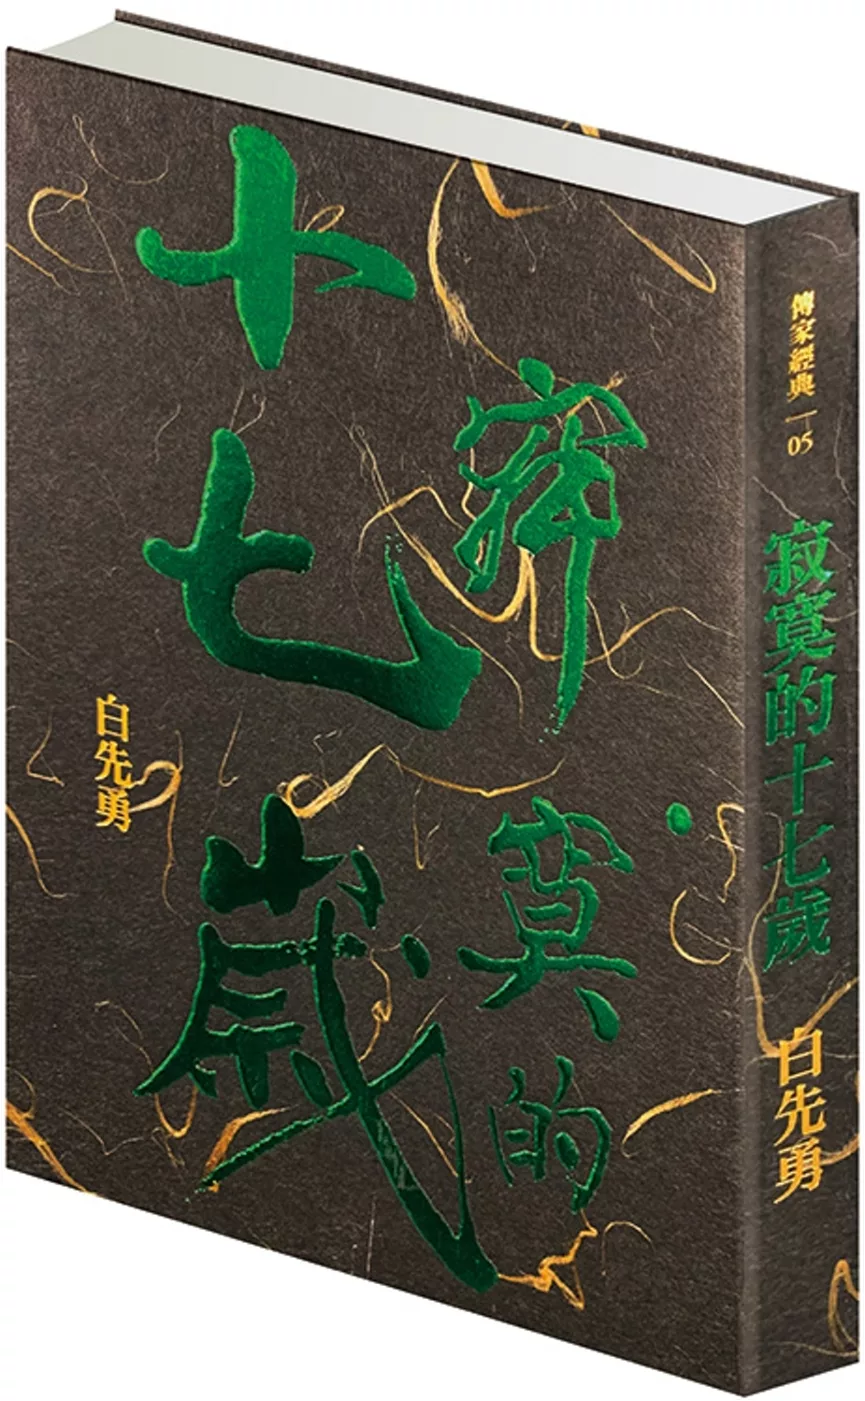 寂寞的
十七歲
白先勇
傳家經典｜05
寂寞的十七歲
白先勇